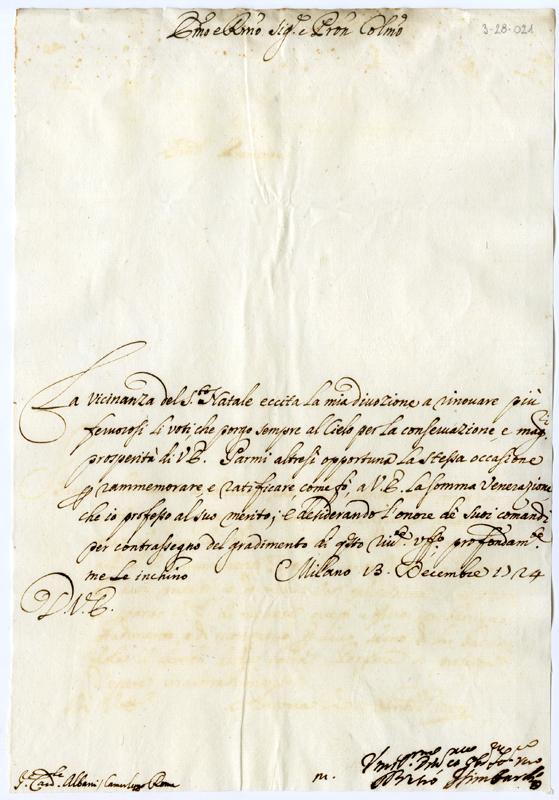 Emo e Rmo Sigr. e Pron Colmo
3-28-021
La vicinanza del S.to Natale eccita la mia divozione a rinovare più
fervorosi li voti, che porgo sempre al Cielo per la conservazione, e magri
prosperità di V.E. Parmi altresi opportuna la stessa occasione
p rammemorare, e ratificare, come fò, a V.E. la somma venerazione
che io professo al suo merito; e desiderando l'onore de' Suoi comandi
per contrassegno del gradimento di qsto riv.e uff.o profondam.e
me le inchino Milano 13. Decembre 1724
D.V.E.
Card.le Albani Camerlgo Roma
m.